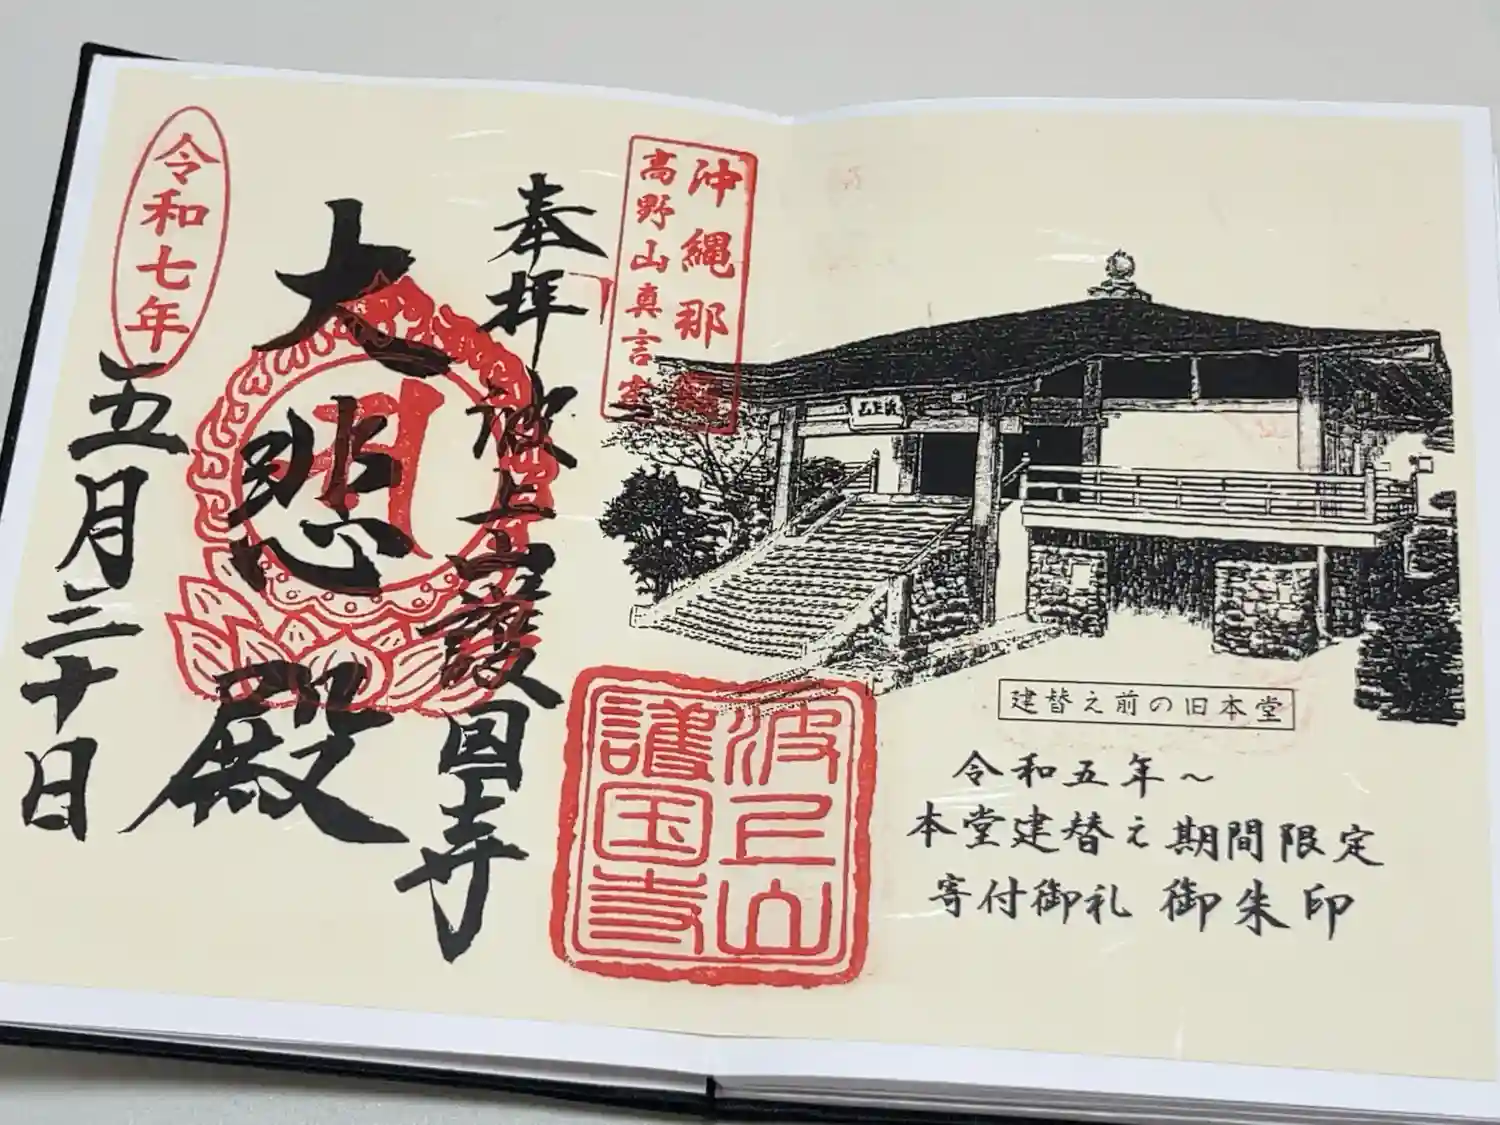 沖縄那覇
高野山真言宗
奉拝
波上山護国寺
大悲殿
令和七年
五月三十日
波上山
護国寺
波上山
建替え前の旧本堂
令和五年～
本堂建替え期間限定
寄付御礼 御朱印